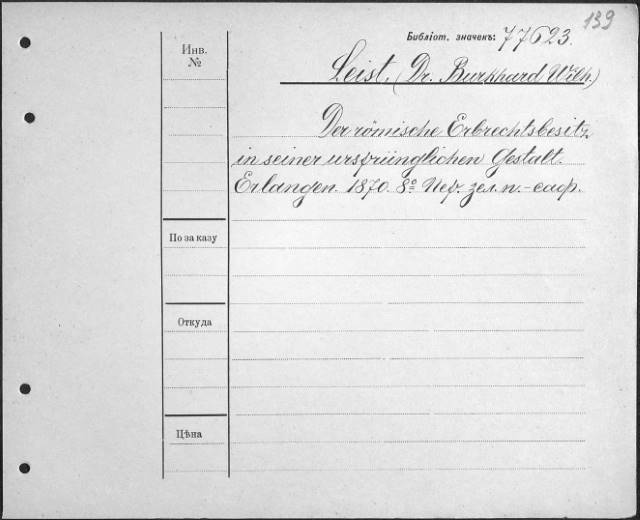 139
Библіот. значекъ: 77623.
Инв.
№
Leist, (Dr. Burkhard Wilh.)
Der römische Erbrechtsbesitz
in seiner ursprünglichen Gestalt.
Erlangen. 1870. 8º Пер. зел. п.-саф.
По заказу
Откуда
Цѣна